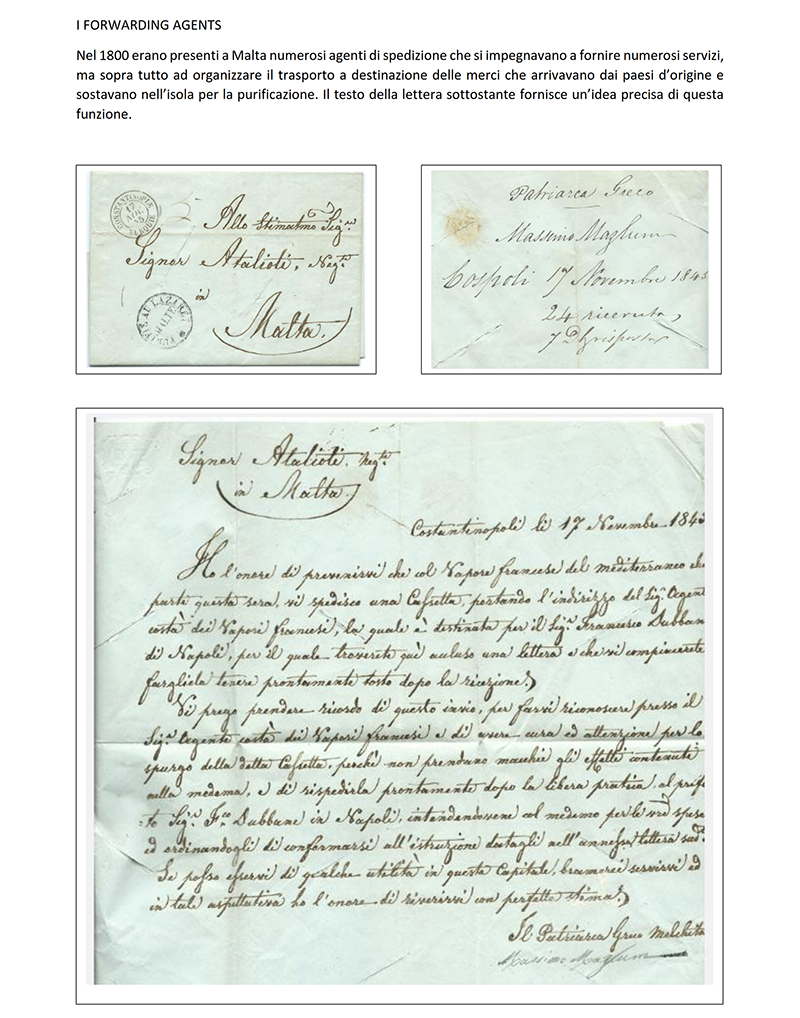 I FORWARDING AGENTS
Nel 1800 erano presenti a Malta numerosi agenti di spedizione che si impegnavano a fornire numerosi servizi,
ma sopra tutto ad organizzare il trasporto a destinazione delle merci che arrivavano dai paesi d’origine e
sostavano nell’isola per la purificazione. Il testo della lettera sottostante fornisce un’idea precisa di questa
funzione.
CONSTANTINOPLE
17
TURQUIE
Allo Stimatmo Sigr
Signor Atalioti, Negte
in
Malta.
PURIFIÉ AU LAZARET
MALTE
Patriarca Greco
Massimo Mazlum
Cospoli 17 Novembre 184
24 ricevuta
7 risposta
Signor Atalioti. Negte
in Malta
Costantinopoli li 17 Novembre 184
Ho l'onore di prevenirvi che col Vapore francese del mediterraneo che
parte questa sera, vi spedisco una Cassetta, portando l'indirizzo del Sigr Agent
costà dei Vapori francesi, la quale è destinata per il Sigr Francesco Dubban
di Napoli, per il quale troverete quì acluso una lettera e che vi compiacerete
fargliela tenere prontamente tosto dopo la ricezione.
Vi prego prendere ricordo di questo invio, per farvi riconoscere presso il
Sigr Agente costà dei Vapori francesi e di avere cura ed attenzione per lo
spurgo della detta Cassetta, perchè non prendano macchie gli effetti contenuti
nella medema, e di rispedirla prontamente dopo la libera pratica, al prefa
=to Sigr Fco Dubbane in Napoli, intendendovene col medemo per le vre spese
ed ordinandogli di confermarsi all'istruzione datagli nell'annessa lettera sudta
Se posso esservi di qualche utilità in questa Capitale, bramerei servirvi ed
in tale aspettativa ho l'onore di riverirvi con perfetta stima.
Il Patriarca Greco Melchita
Massimo Mazlum